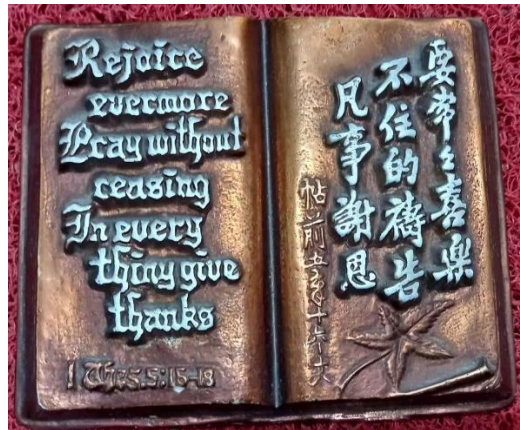 Rejoice
evermore
Pray without
ceasing
In every
thing give
thanks
I Thes.5:16-18
要常々喜樂
不住的禱告
凡事謝恩
帖前五章十六